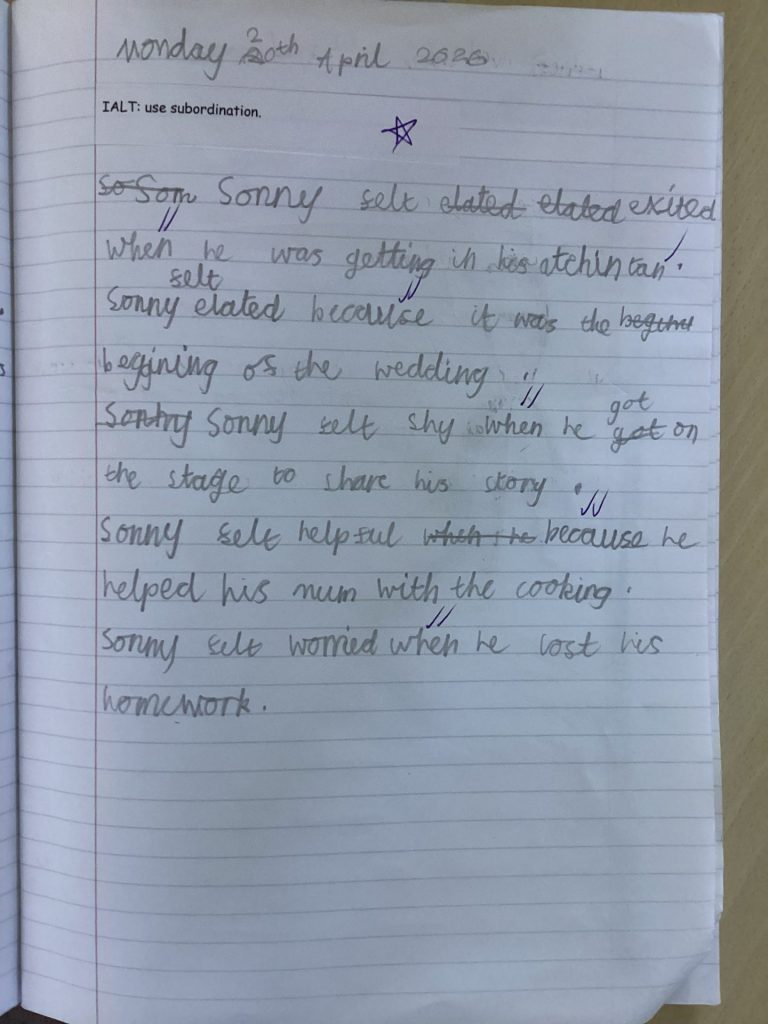 Monday 20th April 2026
IALT: use subordination.
so Som Sonny felt elated elated exited
when he was getting in his atchin tan.
felt
Sonny elated because it was the begini
beggining of the wedding
got
Sontry Sonny felt shy when he got on
the stage to share his story.
Sonny felt helpful when he because he
helped his mum with the cooking.
Sonny felt worried when he lost his
homework.